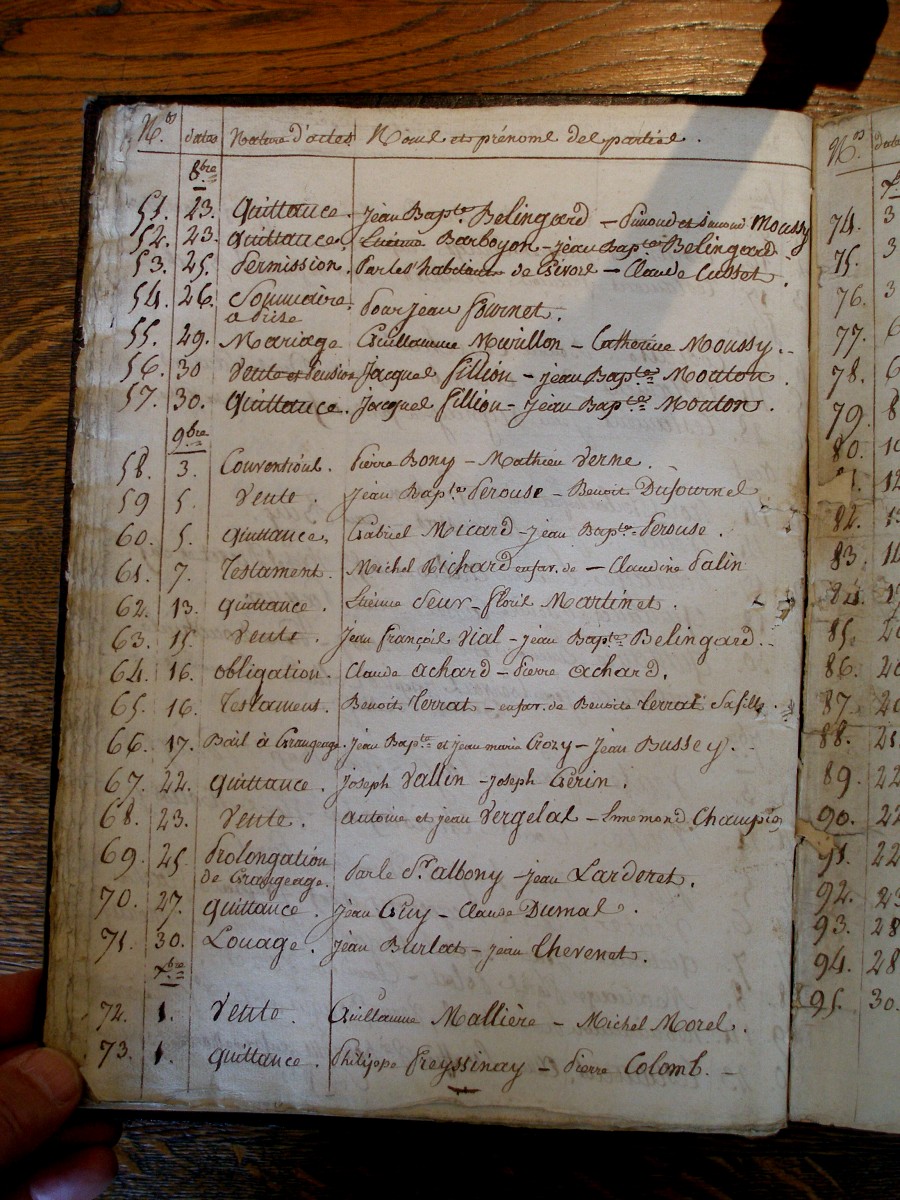 N.os dates Nature d'actes Noms et prénoms des parties.
8.bre
51. 23. Quittance. jean Bap.te Belingard – Simond et Moussy
52. 23. quittance. Etienne Barboyon – jean Bap.te Belingard
53. 25. Permission. Par les habitans de Givors – Claude Cusset.
54. 26. Sommaire Pour jean fournet.
à prise
55. 29. Mariage Guillaumme Murillon – Catherine Moussy.
56. 30 Vente et Pension Jacques fillion – jean Bap.te Mouton.
57. 30. Quittance. Jacques fillion – jean Bap.te Mouton.
9.bre
58. 3. Conventions. Pierre Bony – Mathieu Verne.
59 5. Vente. jean Bap.te Perouse – Benoit Dufournel
60. 5. quittance, Gabriel Micard – jean Bap.te Perouse.
61. 7. Testament. Michel Richard en fav. de – Claudine Palin
62. 13. quittance. Etienne Seur – floris Martinet.
63. 15. Vente. jean françois Vial – jean Bap.te Belingard.
64. 16. obligation. Claude achard – Pierre achard.
65. 16. Testament. Benoit Terrat – en fav. de Benoite Terrat sa fille.
66. 17. Bail à Grangeage. jean Bap.te et jean marie Crozy – jean Bussey.
67. 22. quittance. joseph Vallin – joseph Gerin.
68. 23. Vente. antoine et jean Vergelas – Ennemond Champin
69. 25. Prolongation Par le Sr. albony – jean Larderet.
de Grangeage.
70. 27. quittance. jean Guy – Claude Dumas.
71. 30. Louage. jean Burlat – jean Thevenet.
X.bre
72. 1. Vente. Guillaumme Mallière – Michel Morel.
73. 1. quittance. Philippe Freyssinay – Pierre Colomb. –
N.os
74. 3
75. 3
76. 3
77. 6
78. 6
79. 8
80. 10
1. 12
82. 13
83. 14
84. 17
85. 20
86. 20
87. 20
88. 21
89. 22
90. 22
91. 22
92. 23
93. 28
94. 28
95. 30.